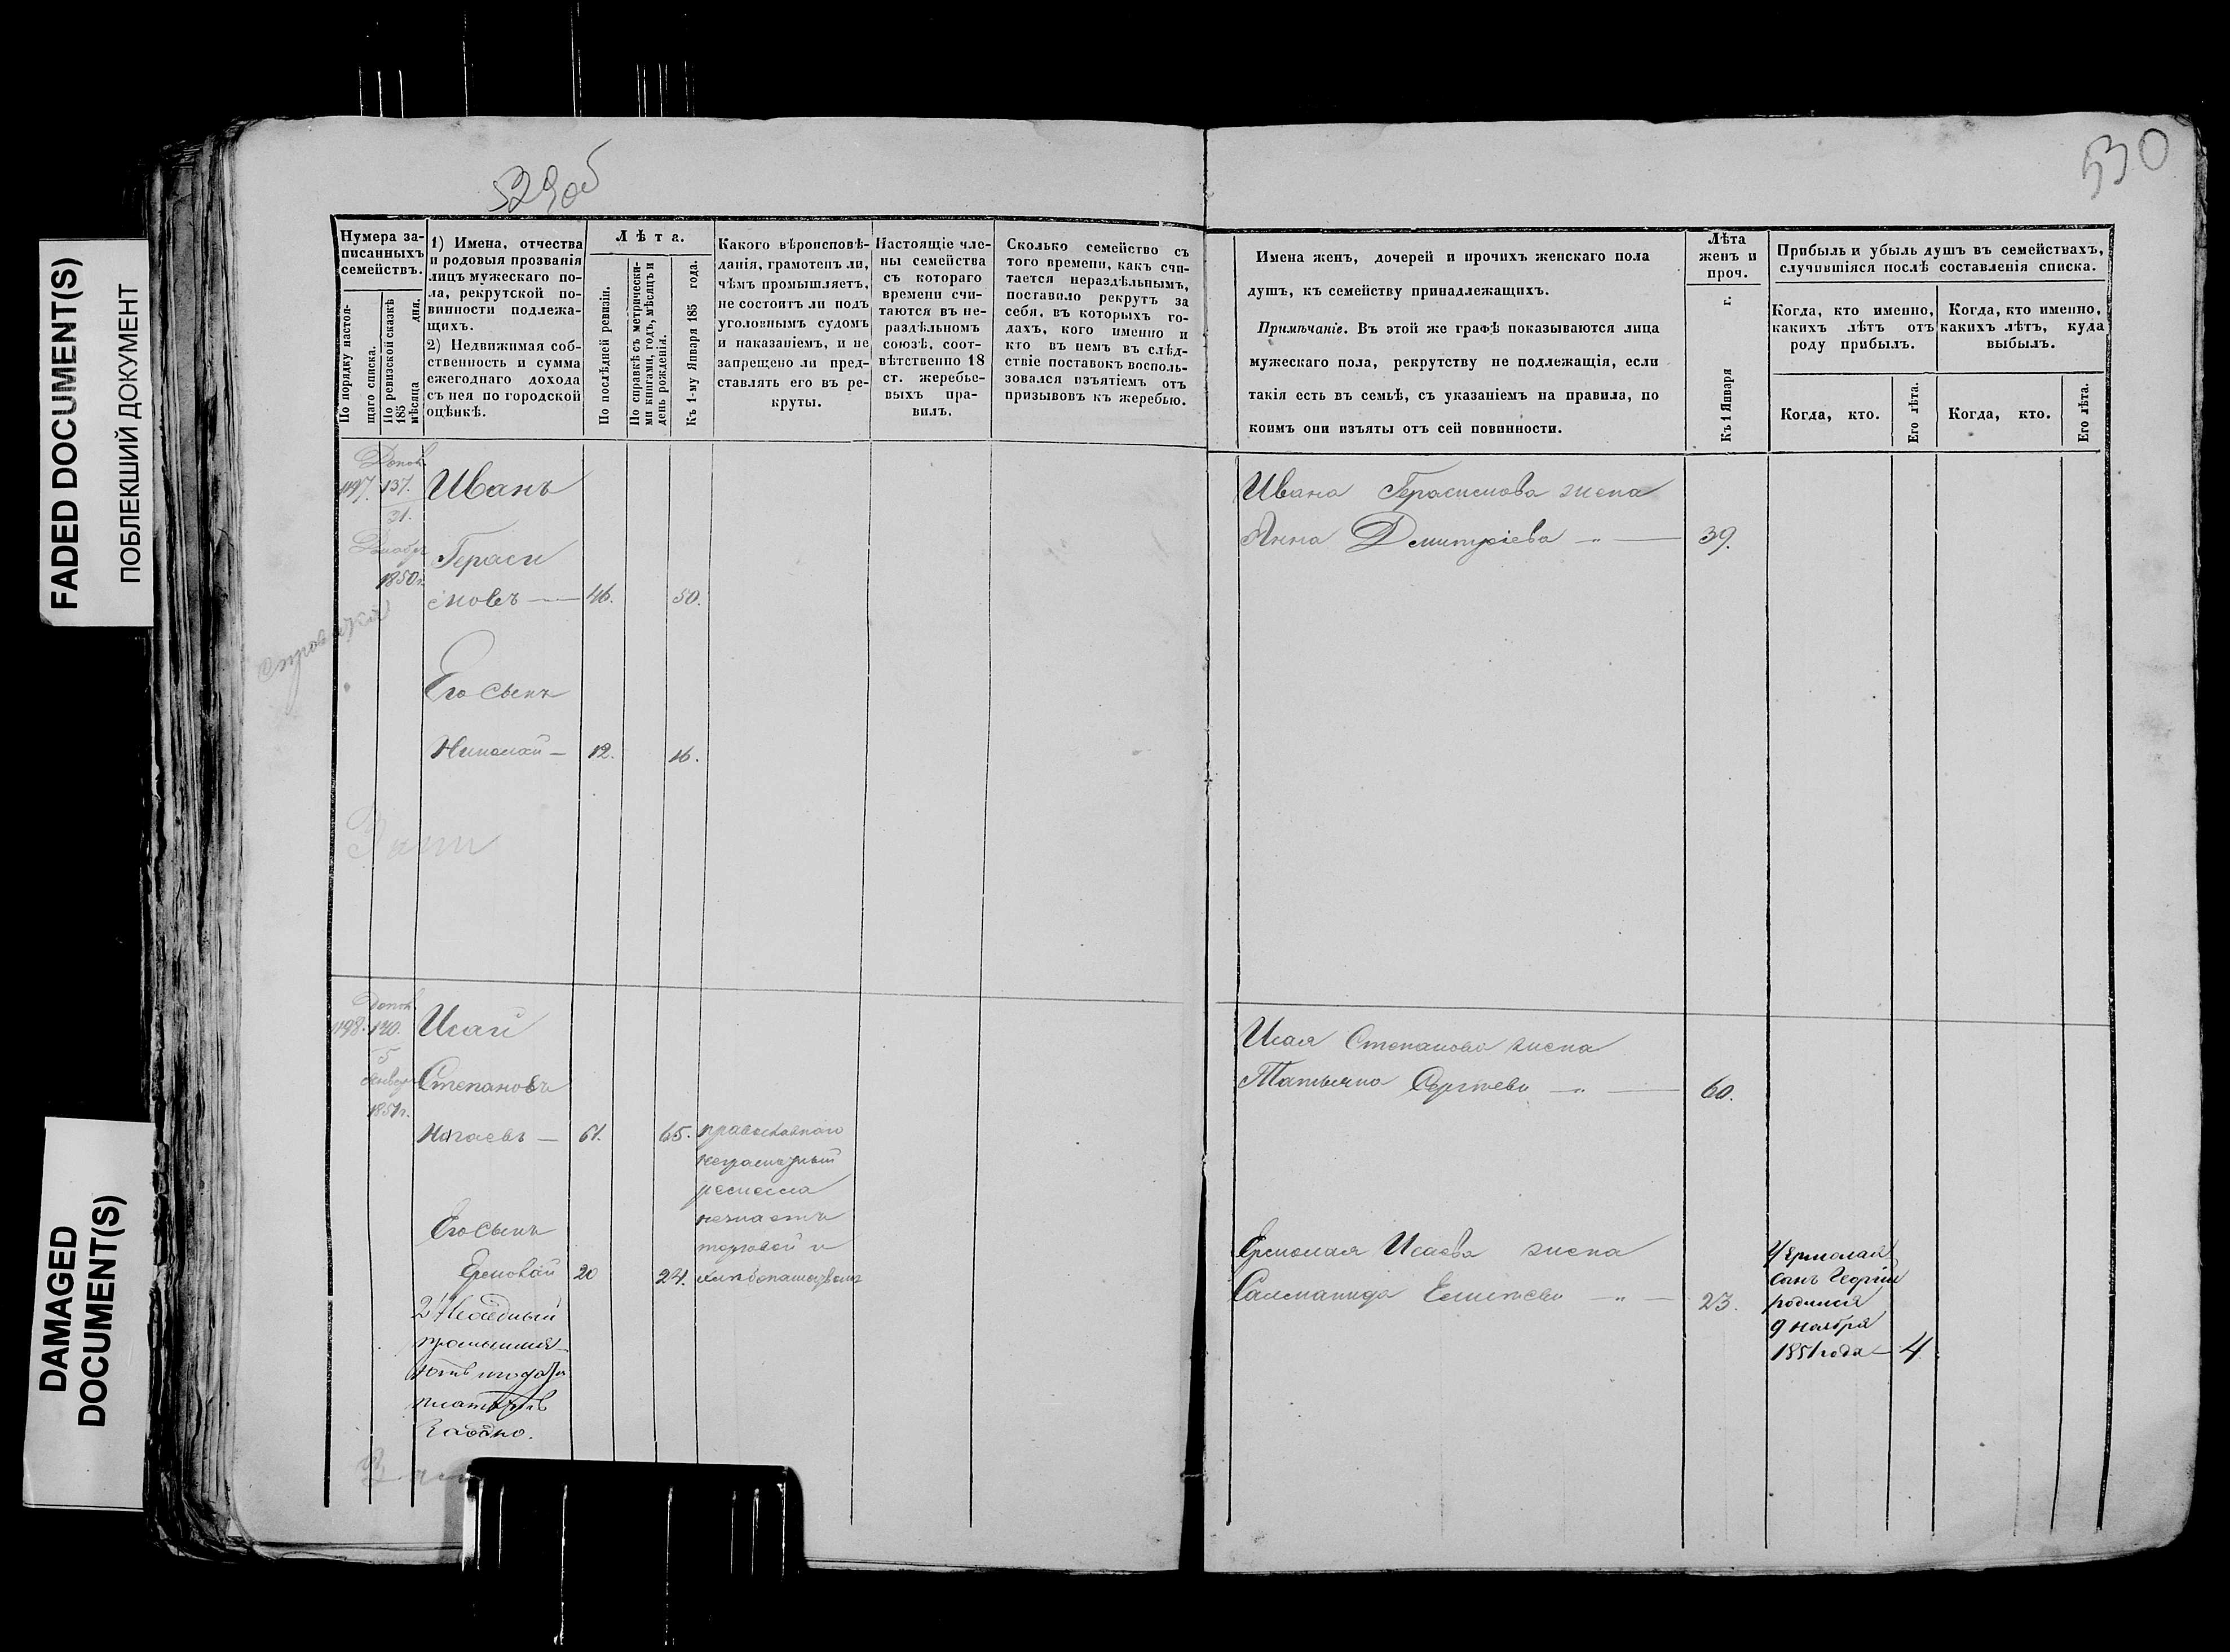 FADED DOCUMENT(S)
ПОБЛЕКШИЙ ДОКУМЕНТ
DAMAGED
DOCUMENT(S)
529об
Нумера за-
писанныхъ
семействъ.
По порядку настоя-
щаго списка.
По ревизской сказкѣ
185 мѣсяца дня.
1) Имена, отчества
и родовыя прозванія
лицъ мужескаго по-
ла, рекрутской по-
винности подлежа-
щихъ.
2) Недвижимая соб-
ственность и сумма
ежегоднаго дохода
съ нея по городской
оцѣнкѣ.
Лѣта.
По послѣдней ревизіи.
По справкѣ съ метрически-
ми книгами, годъ, мѣсяцъ и
день рожденія.
Къ 1-му Января 185 года.
Какого вѣроисповѣ-
данія, грамотенъ ли,
чѣмъ промышляетъ,
не состоитъ ли подъ
уголовнымъ судомъ
и наказаніемъ, и не
запрещено ли пред-
ставлять его въ ре-
круты.
Настоящіе чле-
ны семейства
съ котораго
времени счи-
таются въ не-
раздѣльномъ
союзѣ, соот-
вѣтственно 18
ст. жеребье-
выхъ пра-
вилъ.
Сколько семейство съ
того времени, какъ счи-
тается нераздѣльнымъ,
поставило рекрутъ за
себя, въ которыхъ го-
дахъ, кого именно и
кто въ немъ въ слѣд-
ствіе поставокъ восполь-
зовался изъятіемъ отъ
призывовъ къ жеребью.
Допол.
1197. 137. Иванъ
31.
Декабря Гераси
1850 г.
мовъ — 46. 50.
Его сынъ
Николай — 12. 16.
Допол.
1198. 140. Исай
5
Января Степановъ
1851 г.
Нагаевъ — 61. 65. православнаго
неграмотный
ремесла
незнаетъ
торговой и
Его сынъ
Ермолай 20 24. хлебопашествомъ
530
Имена женъ, дочерей и прочихъ женскаго пола
душъ, къ семейству принадлежащихъ.
Примѣчаніе. Въ этой же графѣ показываются лица
мужескаго пола, рекрутству не подлежащія, если
такія есть въ семьѣ, съ указаніемъ на правила, по
коимъ они изъяты отъ сей повинности.
Лѣта
женъ и
проч.
Къ 1 Января г.
Прибыль и убыль душъ въ семействахъ,
случившіяся послѣ составленія списка.
Когда, кто именно,
какихъ лѣтъ отъ
роду прибылъ.
Когда, кто именно,
какихъ лѣтъ, куда
выбылъ.
Когда, кто.
Его лѣта.
Когда, кто.
Его лѣта.
Ивана Герасимова жена
Анна Дмитріева — „ — 39.
Исая Степанова жена
Татьяна Сергѣева — „ — 60.
Ермолая Исаева жена
23.
У Ермолая
сынъ Георгій
родился
9 ноября
1851 года — 4.